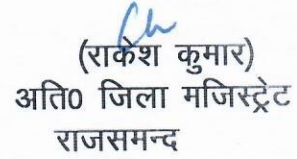 (राकेश कुमार)
अति0 जिला मजिस्ट्रेट
राजसमन्द